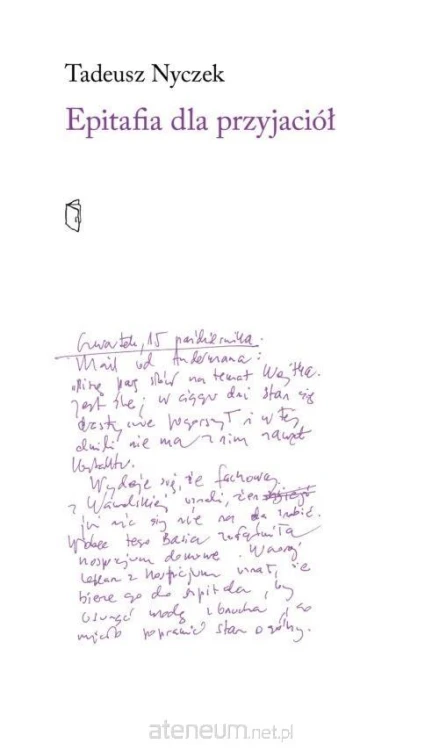 Tadeusz Nyczek
Epitafia dla przyjaciół
Czwartek, 15 października.
Mail od Andermana:
"Piszę parę słów na temat Wojtka.
Jest źle; w ciągu dni stan się
drastycznie pogorszył i w tej
chwili nie ma z nim nawet
kontaktu.
Wydaje się, że fachowcy
z Wawelskiej uznali, że
już nic się nie da zrobić.
Wobec tego Basia załatwiła
hospicjum domowe. Wczoraj
lekarz z hospicjum uznał, że
bierze go do szpitala, by
usunąć wodę z brzucha, co
miało poprawić stan ogólny.
ateneum.net.pl